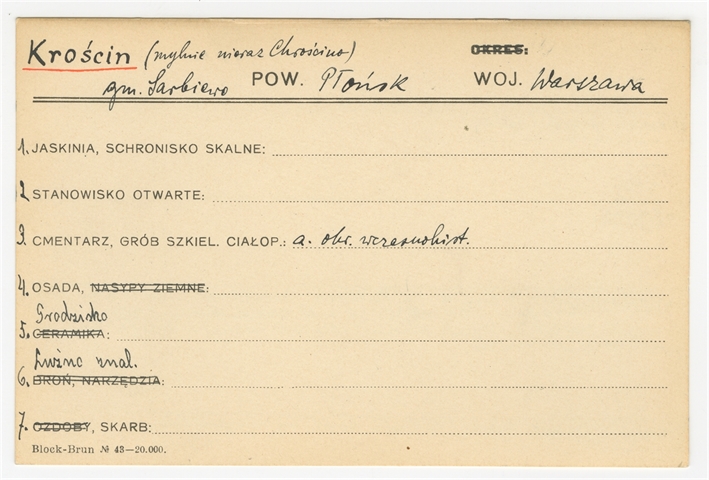 Krościn (mylnie nieraz Chrościno) OKRES:
gm. Sarbiewo POW. Płońsk WOJ. Warszawa
1. JASKINIA, SCHRONISKO SKALNE:
2. STANOWISKO OTWARTE:
3. CMENTARZ, GRÓB SZKIEL. CIAŁOP.: a. okr. wczesnohist.
4. OSADA, NASYPY ZIEMNE:
Grodzisko
5. CERAMIKA:
Luźne znal.
6. BROŃ, NARZĘDZIA:
7. OZDOBY, SKARB:
Block-Brun № 43—20.000.